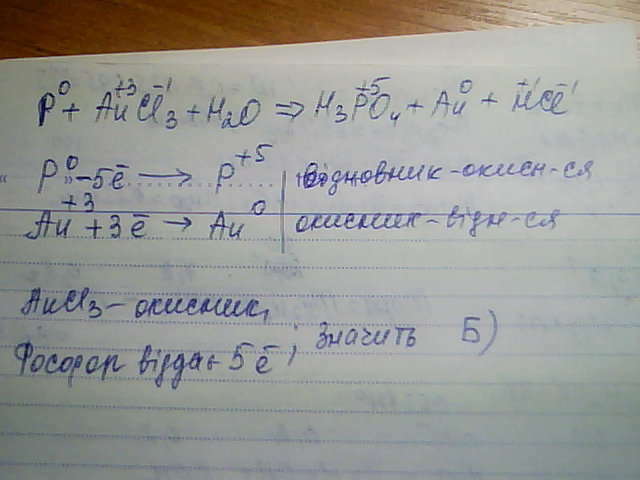 P⁰ + Au⁺³Cl⁻¹₃ + H₂O ⇒ H₃P⁺⁵O₄ + Au⁰ + H⁺¹Cl⁻¹
P⁰ - 5ē → P⁺⁵ | відновник - окисн-ся
Au⁺³ + 3ē → Au⁰ | окисник - відн-ся
AuCl₃ - окисник,
Фосфор віддає 5ē ; значить Б)